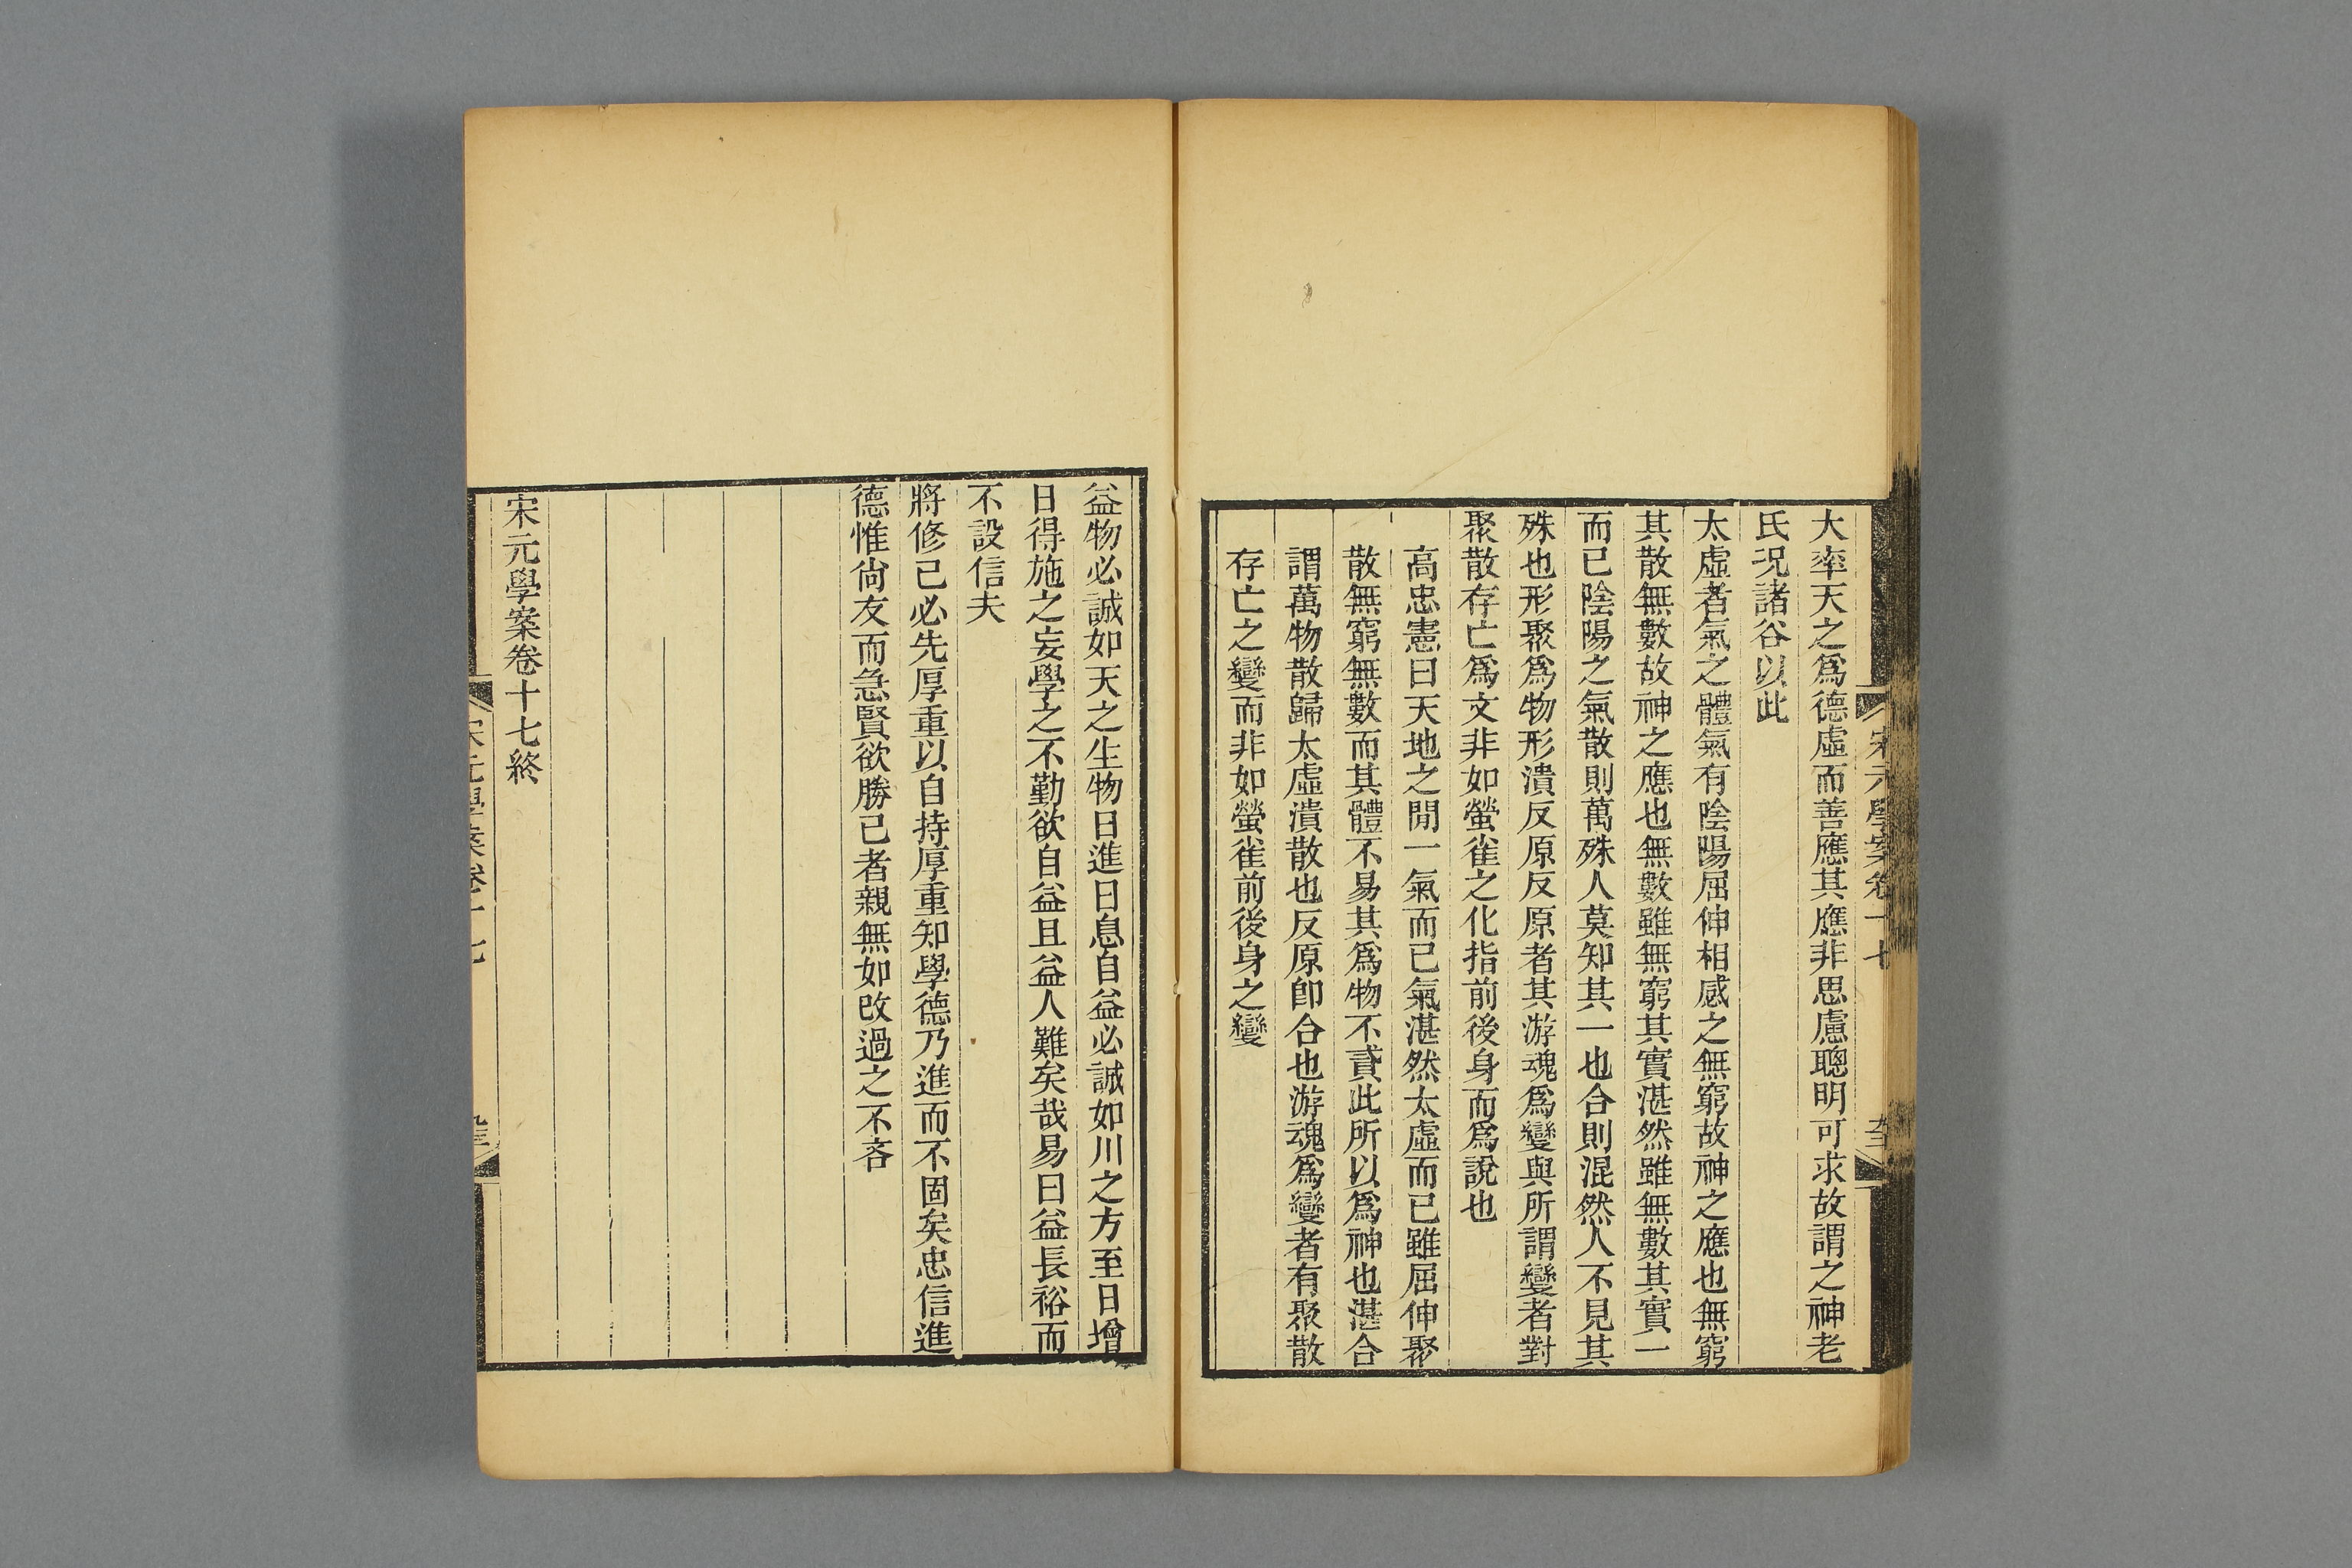 宋元學案卷十七
大率天之爲德虛而善應其應非思慮聰明可求故謂之神老
氏況諸谷以此
太虛者氣之體氣有陰陽屈伸相感之無窮故神之應也無窮
其散無數故神之應也無數雖無窮其實湛然雖無數其實一
而已陰陽之氣散則萬殊人莫知其一也合則混然人不見其
殊也形聚爲物形潰反原反原者其游魂爲變與所謂變者對
聚散存亡爲文非如螢雀之化指前後身而爲說也
高忠憲曰天地之閒一氣而已氣湛然太虛而已雖屈伸聚
散無窮無數而其體不易其爲物不貳此所以爲神也湛合
謂萬物散歸太虛潰散也反原卽合也游魂爲變者有聚散
存亡之變而非如螢雀前後身之變
益物必誠如天之生物日進日息自益必誠如川之方至日增
日得施之妄學之不勤欲自益且益人難矣哉易曰益長裕而
不設信夫
將修己必先厚重以自持厚重知學德乃進而不固矣忠信進
德惟尙友而急賢欲勝己者親無如改過之不吝
宋元學案卷十七終
宋元學案卷十七